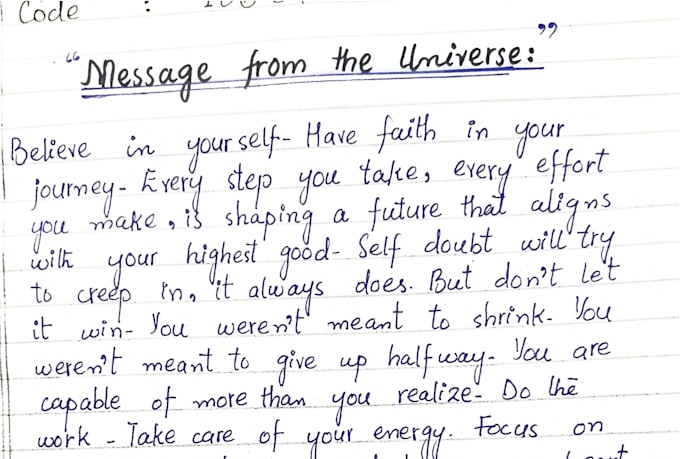 Code :
"Message from the Universe:"
Believe in yourself- Have faith in your
journey- Every step you take, every effort
you make, is shaping a future that aligns
with your highest good- Self doubt will try
to creep in, it always does. But don't let
it win- You weren't meant to shrink- You
weren't meant to give up halfway- You are
capable of more than you realize- Do the
work - Take care of your energy. Focus on